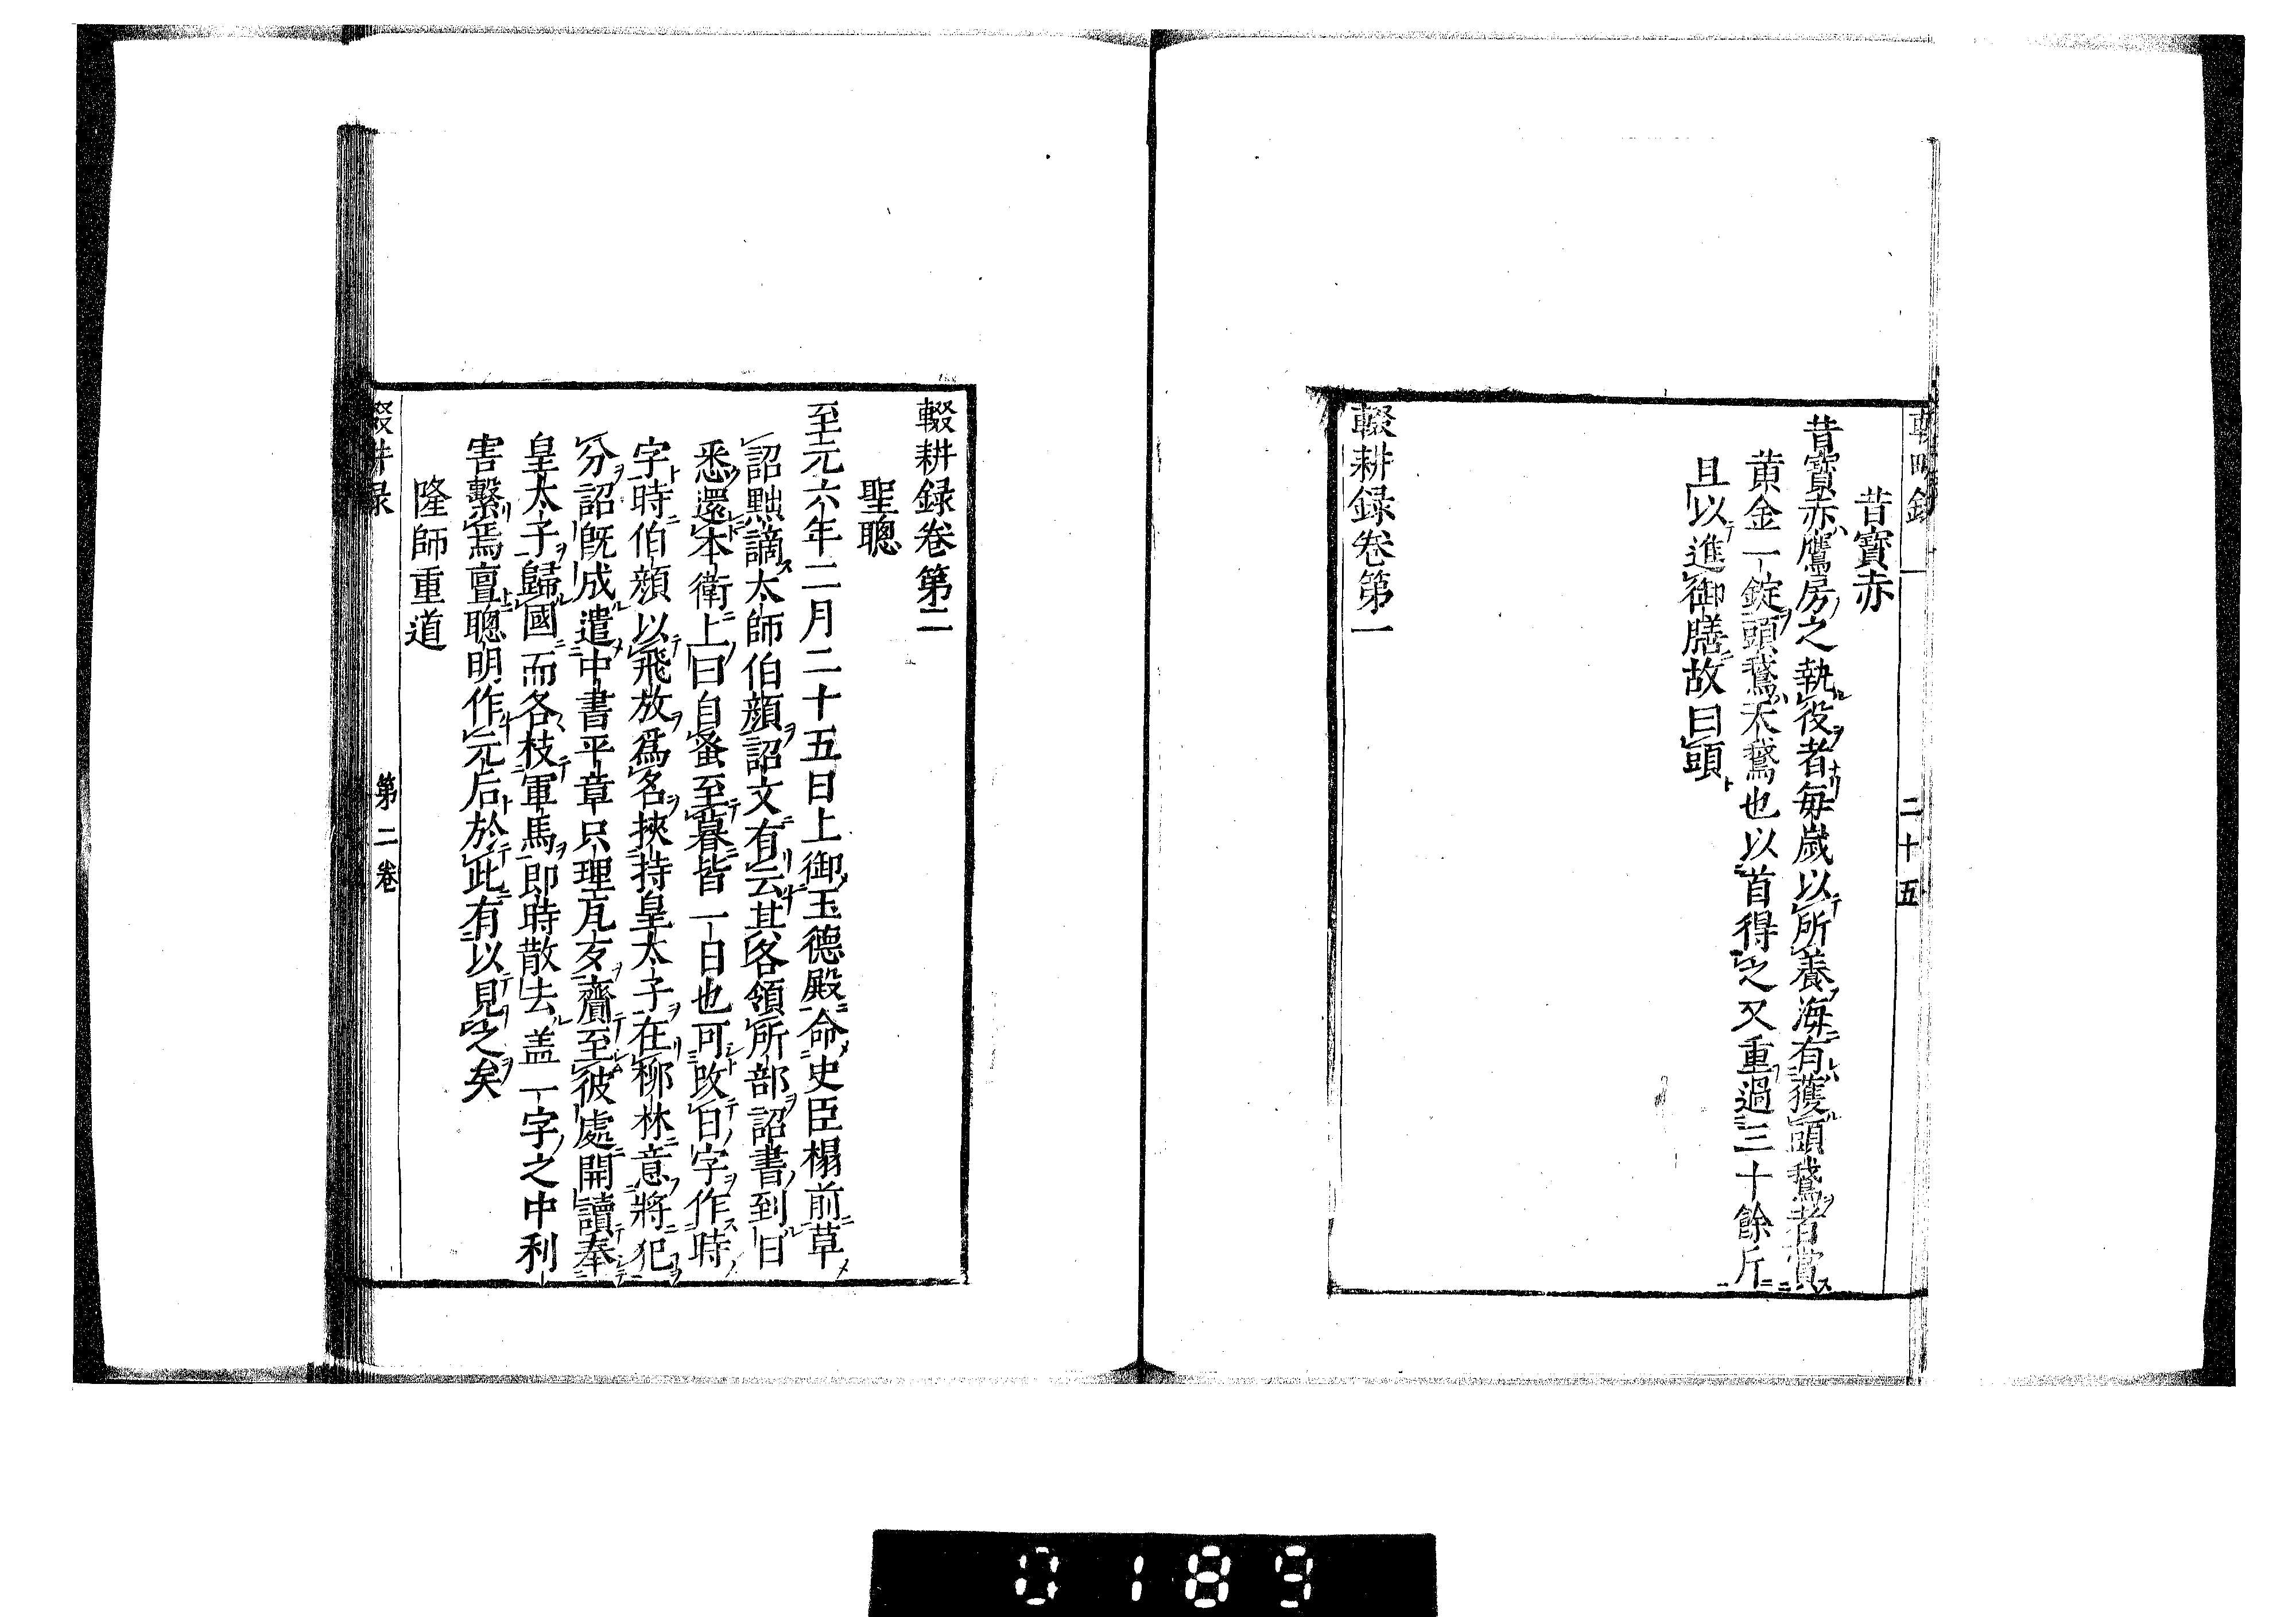 昔寶赤
昔寶赤鷹房之執役者每歲以所養海有獲頭鵞者賞
黄金一錠頭鵞天鵞也以首得之又重過三十餘斤
且以進御膳故曰頭
輟耕録卷第一
二十五
輟耕録卷第二
聖聰
至元六年二月二十五日上御玉德殿命史臣榻前草
詔黜謫太師伯顔詔文有云其各領所部詔書到日
悉還本衛上曰自蚤至暮皆一日也可改日字作時
字時伯顔以飛放爲名挾持皇太子在柳林意將犯
分詔既成遣中書平章只理瓦歹齎至彼處開讀奉
皇太子歸國而各枝軍馬即時散去盖一字之中利
害繫焉亶聰明作元后於此有以見之矣
隆師重道
第二卷
0189